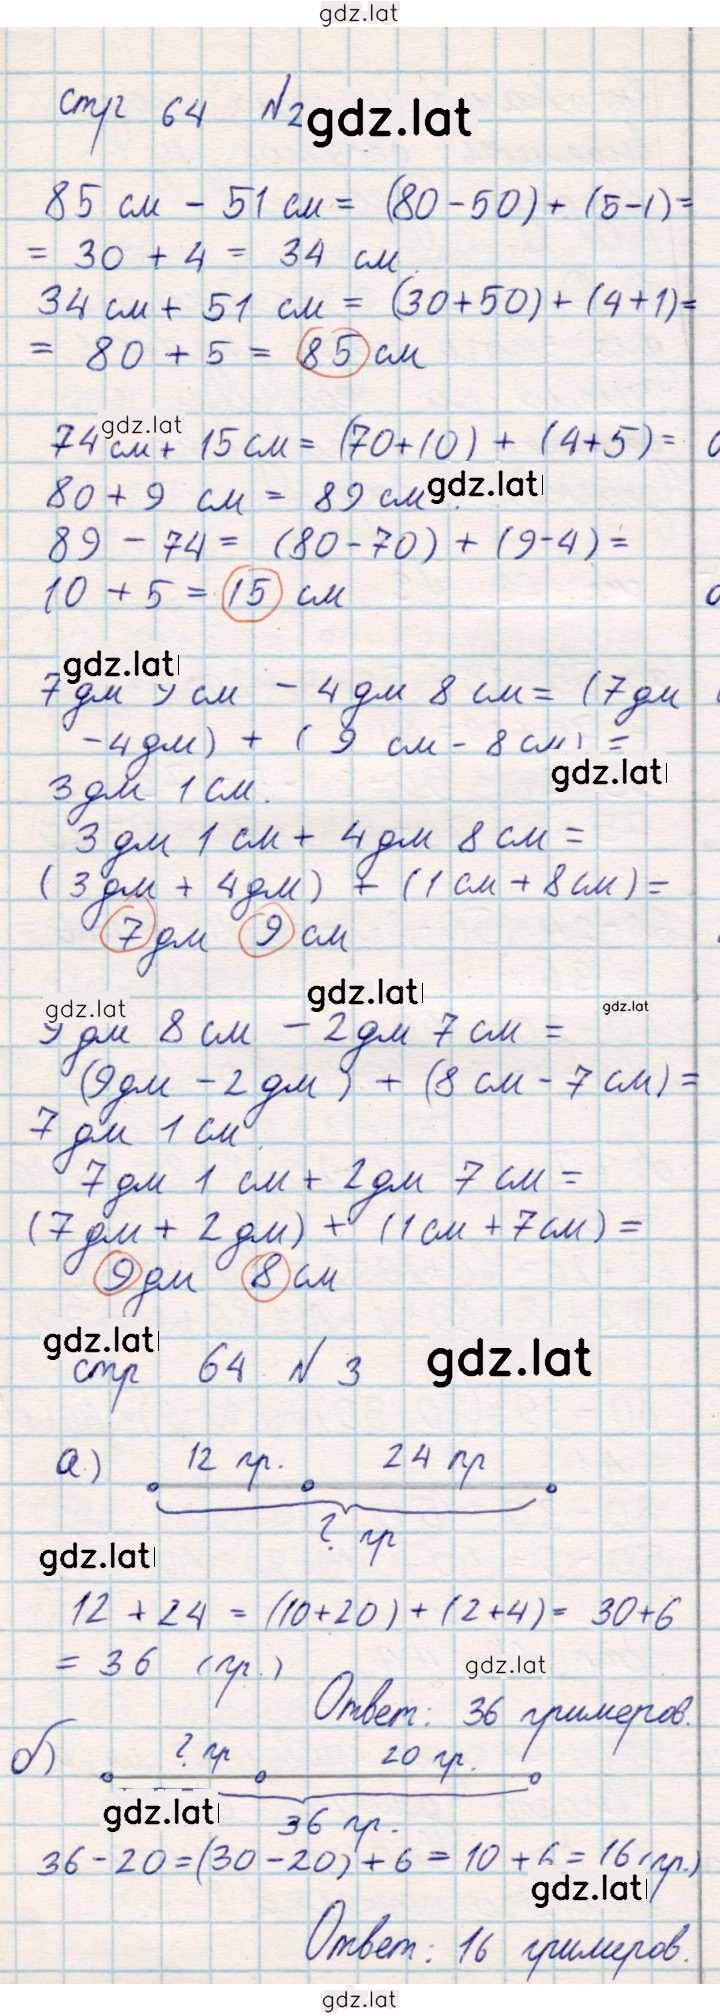 gdz.lat
стр 64 №2 gdz.lat
85 см - 51 см = (80-50) + (5-1)=
= 30 + 4 = 34 см
34 см + 51 см = (30+50)+(4+1)=
= 80 + 5 = 85 см
gdz.lat
74 см + 15 см = (70+10) + (4+5) =
80+9 см = 89 см gdz.lat
89 - 74 = (80-70) + (9-4) =
10 + 5 = 15 см
gdz.lat
7 дм 9 см - 4 дм 8 см = (7 дм
-4 дм) + (9 см - 8 см) =
gdz.lat
3 дм 1 см.
3 дм 1 см + 4 дм 8 см =
(3 дм + 4 дм) + (1 см + 8 см) =
7 дм 9 см
gdz.lat gdz.lat gdz.lat
9 дм 8 см - 2 дм 7 см =
(9 дм - 2 дм) + (8 см - 7 см) =
7 дм 1 см.
7 дм 1 см + 2 дм 7 см =
(7 дм + 2 дм) + (1 см + 7 см) =
9 дм 8 см
gdz.lat
стр 64 № 3 gdz.lat
а) 12 пр. 24 пр
? пр
gdz.lat
12 + 24 = (10+20) + (2+4) = 30+6
= 36 (пр.)
gdz.lat
Ответ: 36 примеров.
б) ? пр 20 пр.
gdz.lat
36 пр.
36 - 20 = (30-20) + 6 = 10 + 6 = 16 (пр.)
gdz.lat
Ответ: 16 примеров.
gdz.lat